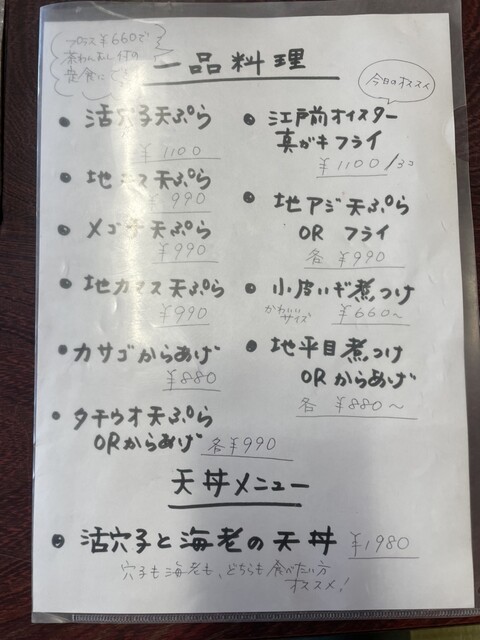 プラス¥660で
茶わんむし付の
定食に
一品料理
今日のオススメ
・活穴子天ぷら
¥1100
・地キス天ぷら
¥990
・メゴチ天ぷら
¥990
・地カマス天ぷら
¥990
・カサゴからあげ
¥880
・タチウオ天ぷら
ORからあげ 各¥990
・江戸前オイスター
真ガキフライ
¥1100/3コ
・地アジ天ぷら
OR フライ
各 ¥990
・小皮ハギ煮つけ
かわいいサイズ ¥660〜
・地平目煮つけ
ORからあげ
各 ¥880〜
天丼メニュー
・活穴子と海老の天丼 ¥1980
穴子も海老も、どちらも食べたい方
オススメ!